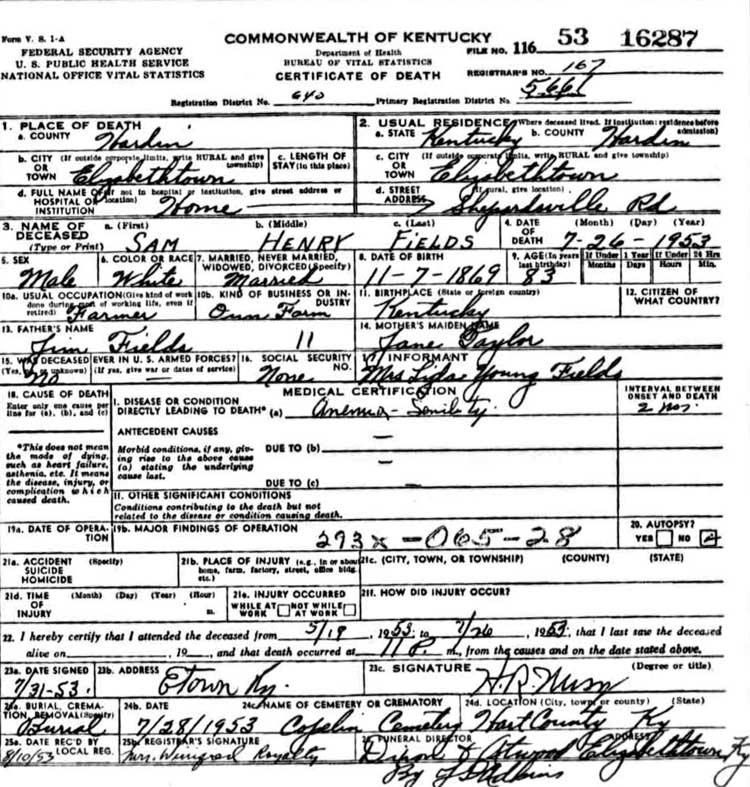 Form V. S. 1-A
COMMONWEALTH OF KENTUCKY
FEDERAL SECURITY AGENCY
U. S. PUBLIC HEALTH SERVICE
NATIONAL OFFICE VITAL STATISTICS
Department of Health
BUREAU OF VITAL STATISTICS
CERTIFICATE OF DEATH
FILE NO. 116 53 16287
REGISTRAR'S NO. 167
Registration District No. 640 Primary Registration District No. 5661
1. PLACE OF DEATH
a. COUNTY Hardin
2. USUAL RESIDENCE (Where deceased lived. If institution: residence before admission)
a. STATE Kentucky b. COUNTY Hardin
b. CITY (If outside corporate limits, write RURAL and give township) OR TOWN Elizabethtown
c. LENGTH OF STAY (in this place)
c. CITY (If outside corporate limits, write RURAL and give township) OR TOWN Elizabethtown
d. FULL NAME OF (If not in hospital or institution, give street address or location) HOSPITAL OR INSTITUTION Home
d. STREET ADDRESS (If rural, give location) Shepardsville Rd
3. NAME OF DECEASED (Type or Print) a. (First) SAM b. (Middle) HENRY c. (Last) FIELDS
4. DATE OF DEATH (Month) (Day) (Year) 7-26-1953
5. SEX Male
6. COLOR OR RACE White
7. MARRIED, NEVER MARRIED, WIDOWED, DIVORCED (Specify) Married
8. DATE OF BIRTH 11-7-1869
9. AGE (In years last birthday) 83 If Under 1 Year Months Days If Under 24 Hrs Hours Min.
10a. USUAL OCCUPATION (Give kind of work done during most of working life, even if retired) Farmer
10b. KIND OF BUSINESS OR INDUSTRY Own Farm
11. BIRTHPLACE (State or foreign country) Kentucky
12. CITIZEN OF WHAT COUNTRY?
13. FATHER'S NAME Jim Fields 11
14. MOTHER'S MAIDEN NAME Jane Taylor
15. WAS DECEASED EVER IN U. S. ARMED FORCES? (Yes, no, or unknown) (If yes, give war or dates of service) No
16. SOCIAL SECURITY NO. None
17. INFORMANT Mrs Lida Young Fields
18. CAUSE OF DEATH
Enter only one cause per line for (a), (b), and (c)
MEDICAL CERTIFICATION
INTERVAL BETWEEN ONSET AND DEATH
I. DISEASE OR CONDITION DIRECTLY LEADING TO DEATH* (a) Anemia - Senility. 2 mos.
*This does not mean the mode of dying, such as heart failure, asthenia, etc. It means the disease, injury, or complication which caused death.
ANTECEDENT CAUSES
Morbid conditions, if any, giving rise to the above cause (a) stating the underlying cause last.
DUE TO (b) —
DUE TO (c) —
II. OTHER SIGNIFICANT CONDITIONS
Conditions contributing to the death but not related to the disease or condition causing death.
19a. DATE OF OPERATION
19b. MAJOR FINDINGS OF OPERATION
293x - 065 - 28
20. AUTOPSY?
YES NO
21a. ACCIDENT SUICIDE HOMICIDE (Specify)
21b. PLACE OF INJURY (e.g., in or about home, farm, factory, street, office bldg. etc.)
21c. (CITY, TOWN, OR TOWNSHIP) (COUNTY) (STATE)
21d. TIME OF INJURY (Month) (Day) (Year) (Hour) m.
21e. INJURY OCCURRED WHILE AT WORK NOT WHILE AT WORK
21f. HOW DID INJURY OCCUR?
22. I hereby certify that I attended the deceased from 5/19, 1953 to 7/26, 1953, that I last saw the deceased
alive on , 19 , and that death occurred at 11 P. m., from the causes and on the date stated above.
23a. DATE SIGNED 7/31-53.
23b. ADDRESS Etown Ky.
23c. SIGNATURE (Degree or title) H.R.
24a. BURIAL, CREMATION, REMOVAL (Specify) Burial
24b. DATE 7/28/1953
24c. NAME OF CEMETERY OR CREMATORY Copelin Cemetery
24d. LOCATION (City, town or county) (State) Hart County Ky
25a. DATE REC'D BY LOCAL REG. 8/10/53
25b. REGISTRAR'S SIGNATURE Mrs. Royalty
FUNERAL DIRECTOR ADDRESS Dixon & Atwood Elizabethtown, Ky
By